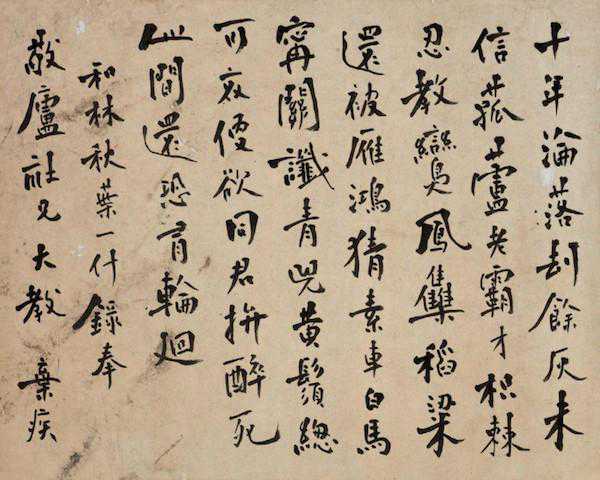 十年淪落刦餘灰未
信菰蘆老霸才枳棘
忍教鸞鳳集稻粱
還被雁鴻猜素車白馬
甯關讖青兕黄鬚總
可哀便欲同君拚醉死
此間還恐有輪廻
和林秋葉一什錄奉
敬廬社兄大教 棄疾